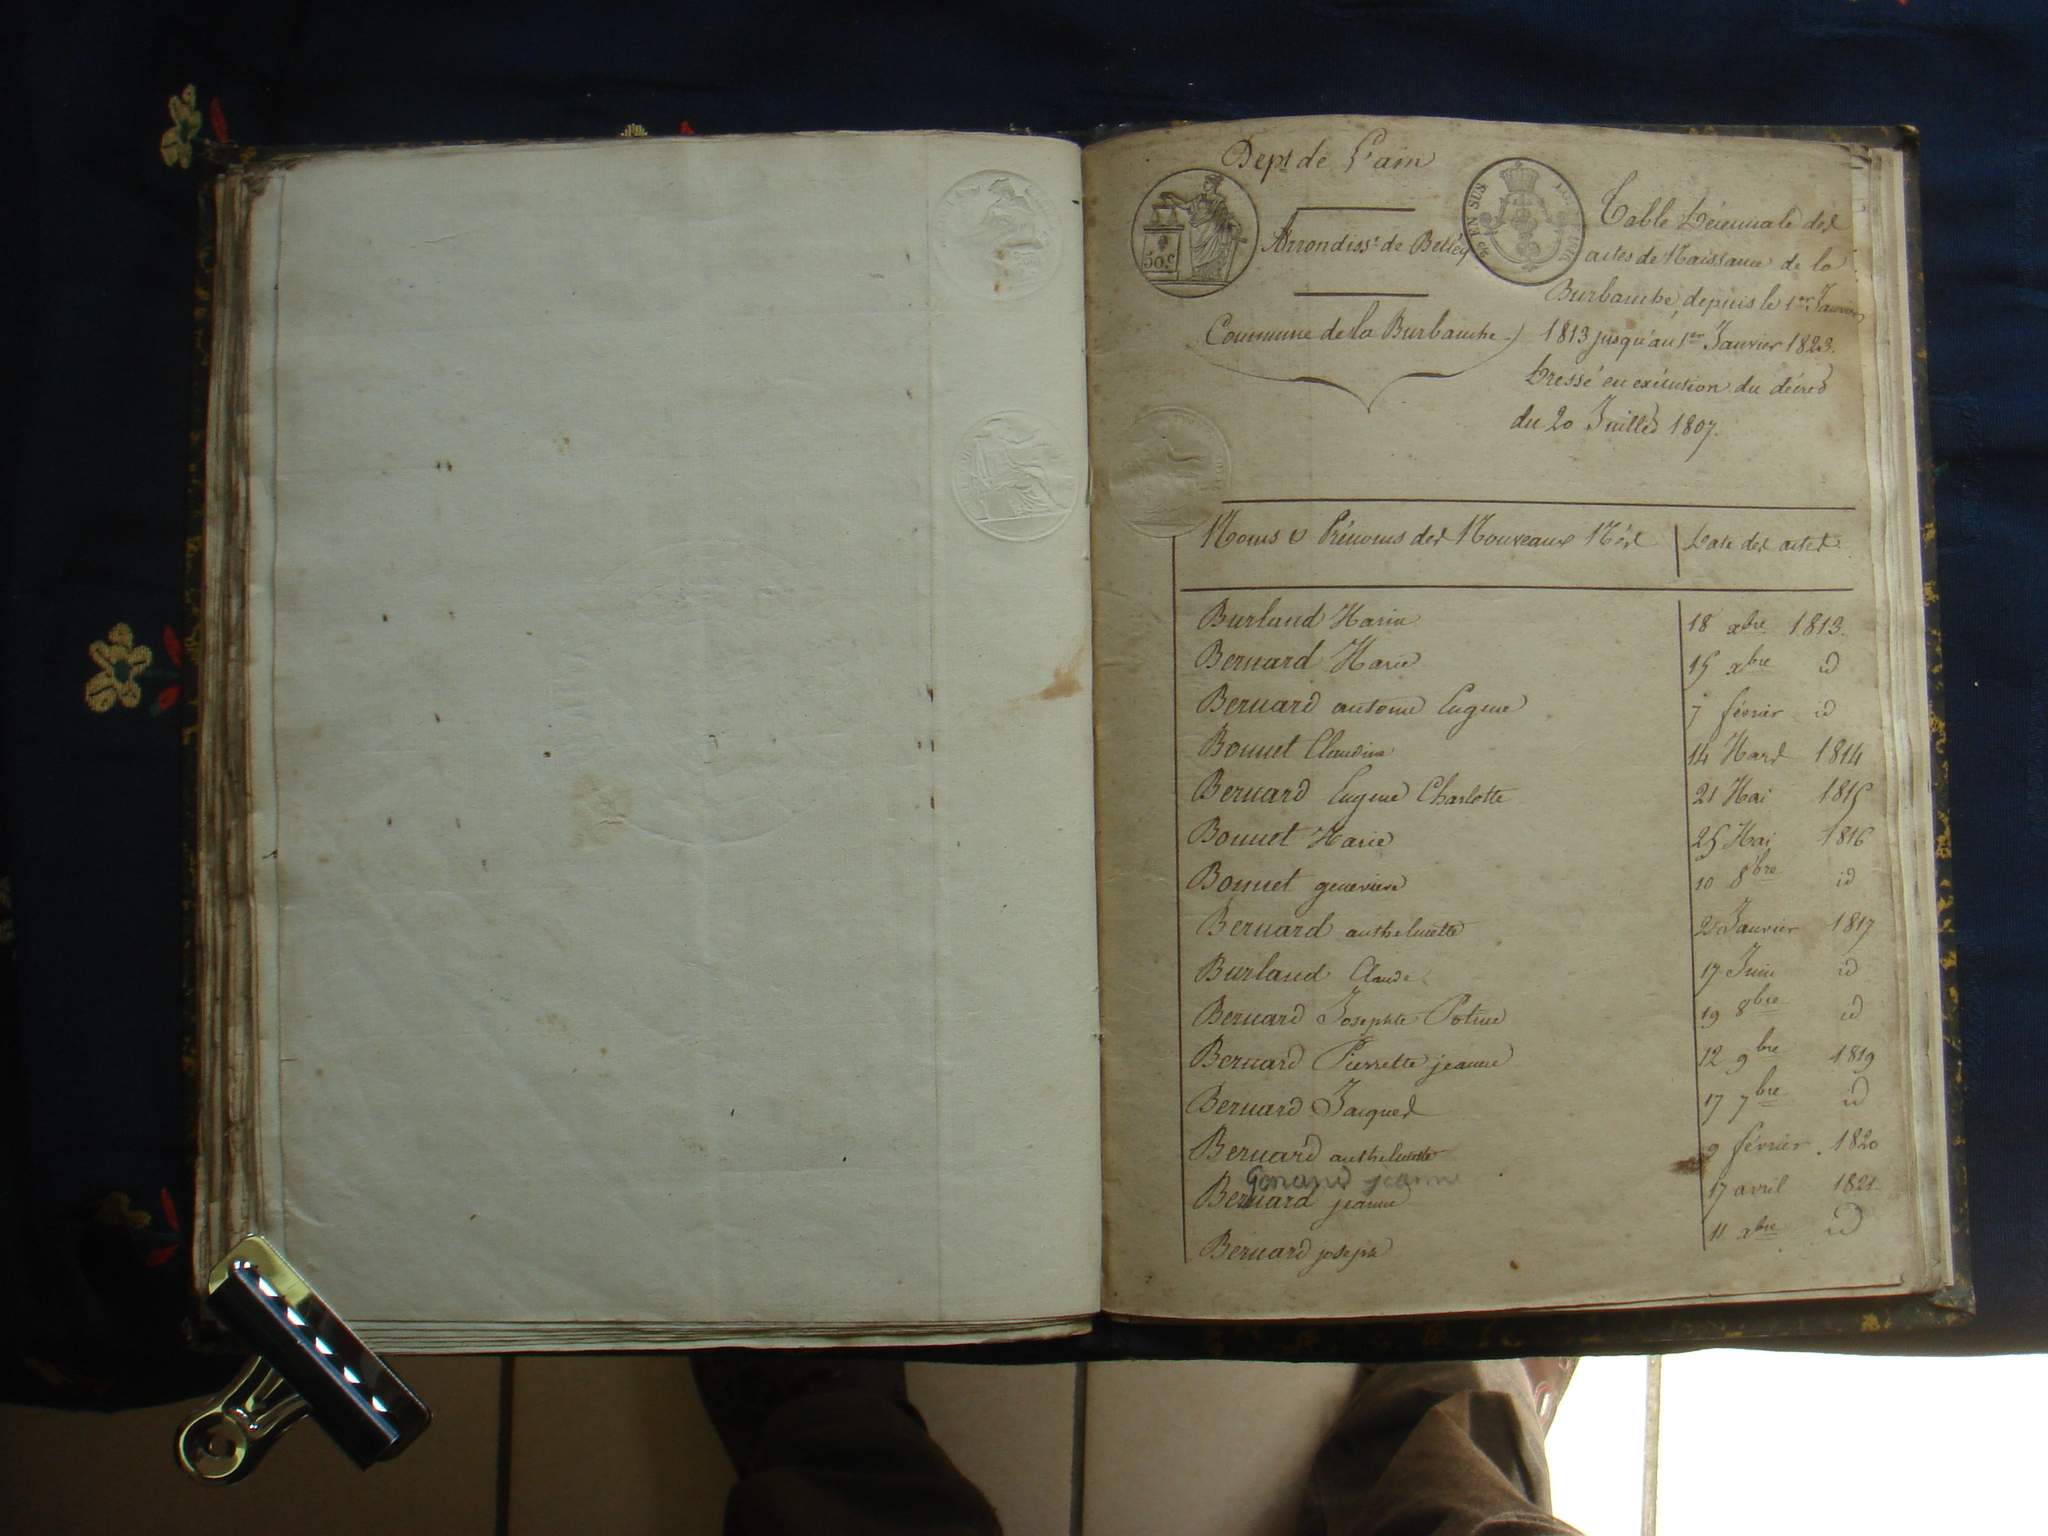 Dept de L'ain
Arrondisst de Belley
Commune de la Burbanche
50 c
EN SUS
Table Décennale des
actes de Naissance de la
Burbanche, depuis le 1er Janvier
1813 jusqu'au 1er Janvier 1823.
Dressé en exécution du décret
du 20 Juillet 1807.
Noms & Prénoms des Nouveaux Nés Date des actes
Burland Marie 18 xbre 1813.
Bernard Marie 15 xbre id
Bernard antoine Eugene 7 février id
Bonnet Claudine 14 Mars 1814
Bernard Eugene Charlotte 21 Mai 1815
Bonnet Marie 25 Mai 1816
Bonnet genevieve 10 8bre id
Bernard anthelmette 2 Janvier 1817
Burland Claude 17 Juin id
Bernard Josephte 19 8bre id
Bernard Pierrette jeanne 12 9bre 1819
Bernard Jacques 17 7bre id
Bernard anthelmette 9 février 1820
Gonand jeanne
Bernard jeanne 17 avril 1821
Bernard joseph 11 xbre id